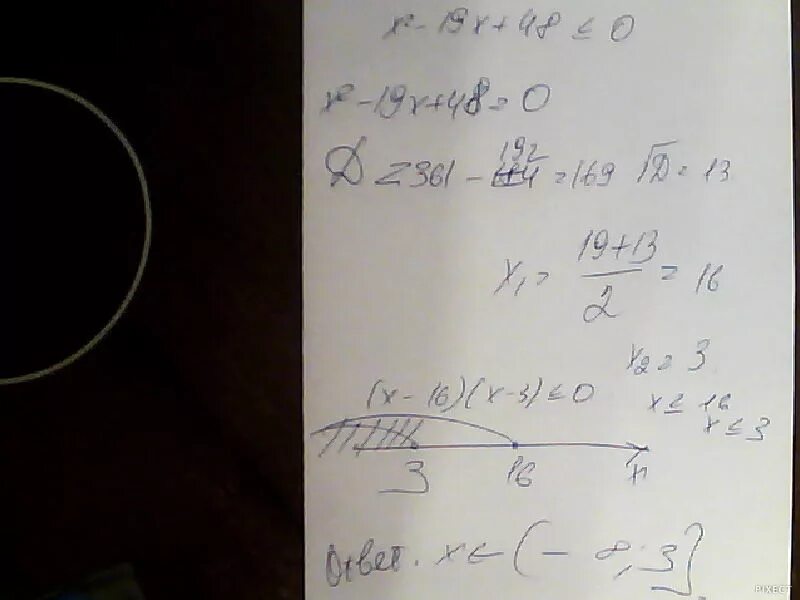 x² - 19x + 48 ≤ 0
x² - 19x + 48 = 0
D = 361 - 192 = 169 √D = 13
x₁ = (19+13)/2 = 16
x₂ = 3
(x - 16)(x - 3) ≤ 0
x ≤ 16
x ≤ 3
3 16 x
Ответ. x ∈ (-∞; 3]
PIXECT